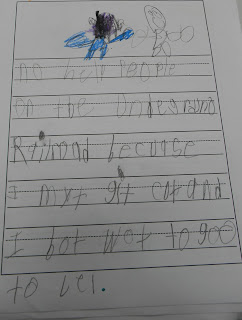 no help People
on the Undeground
Railrond because
I myt git cot and
I bot wot to goe
to Lel.